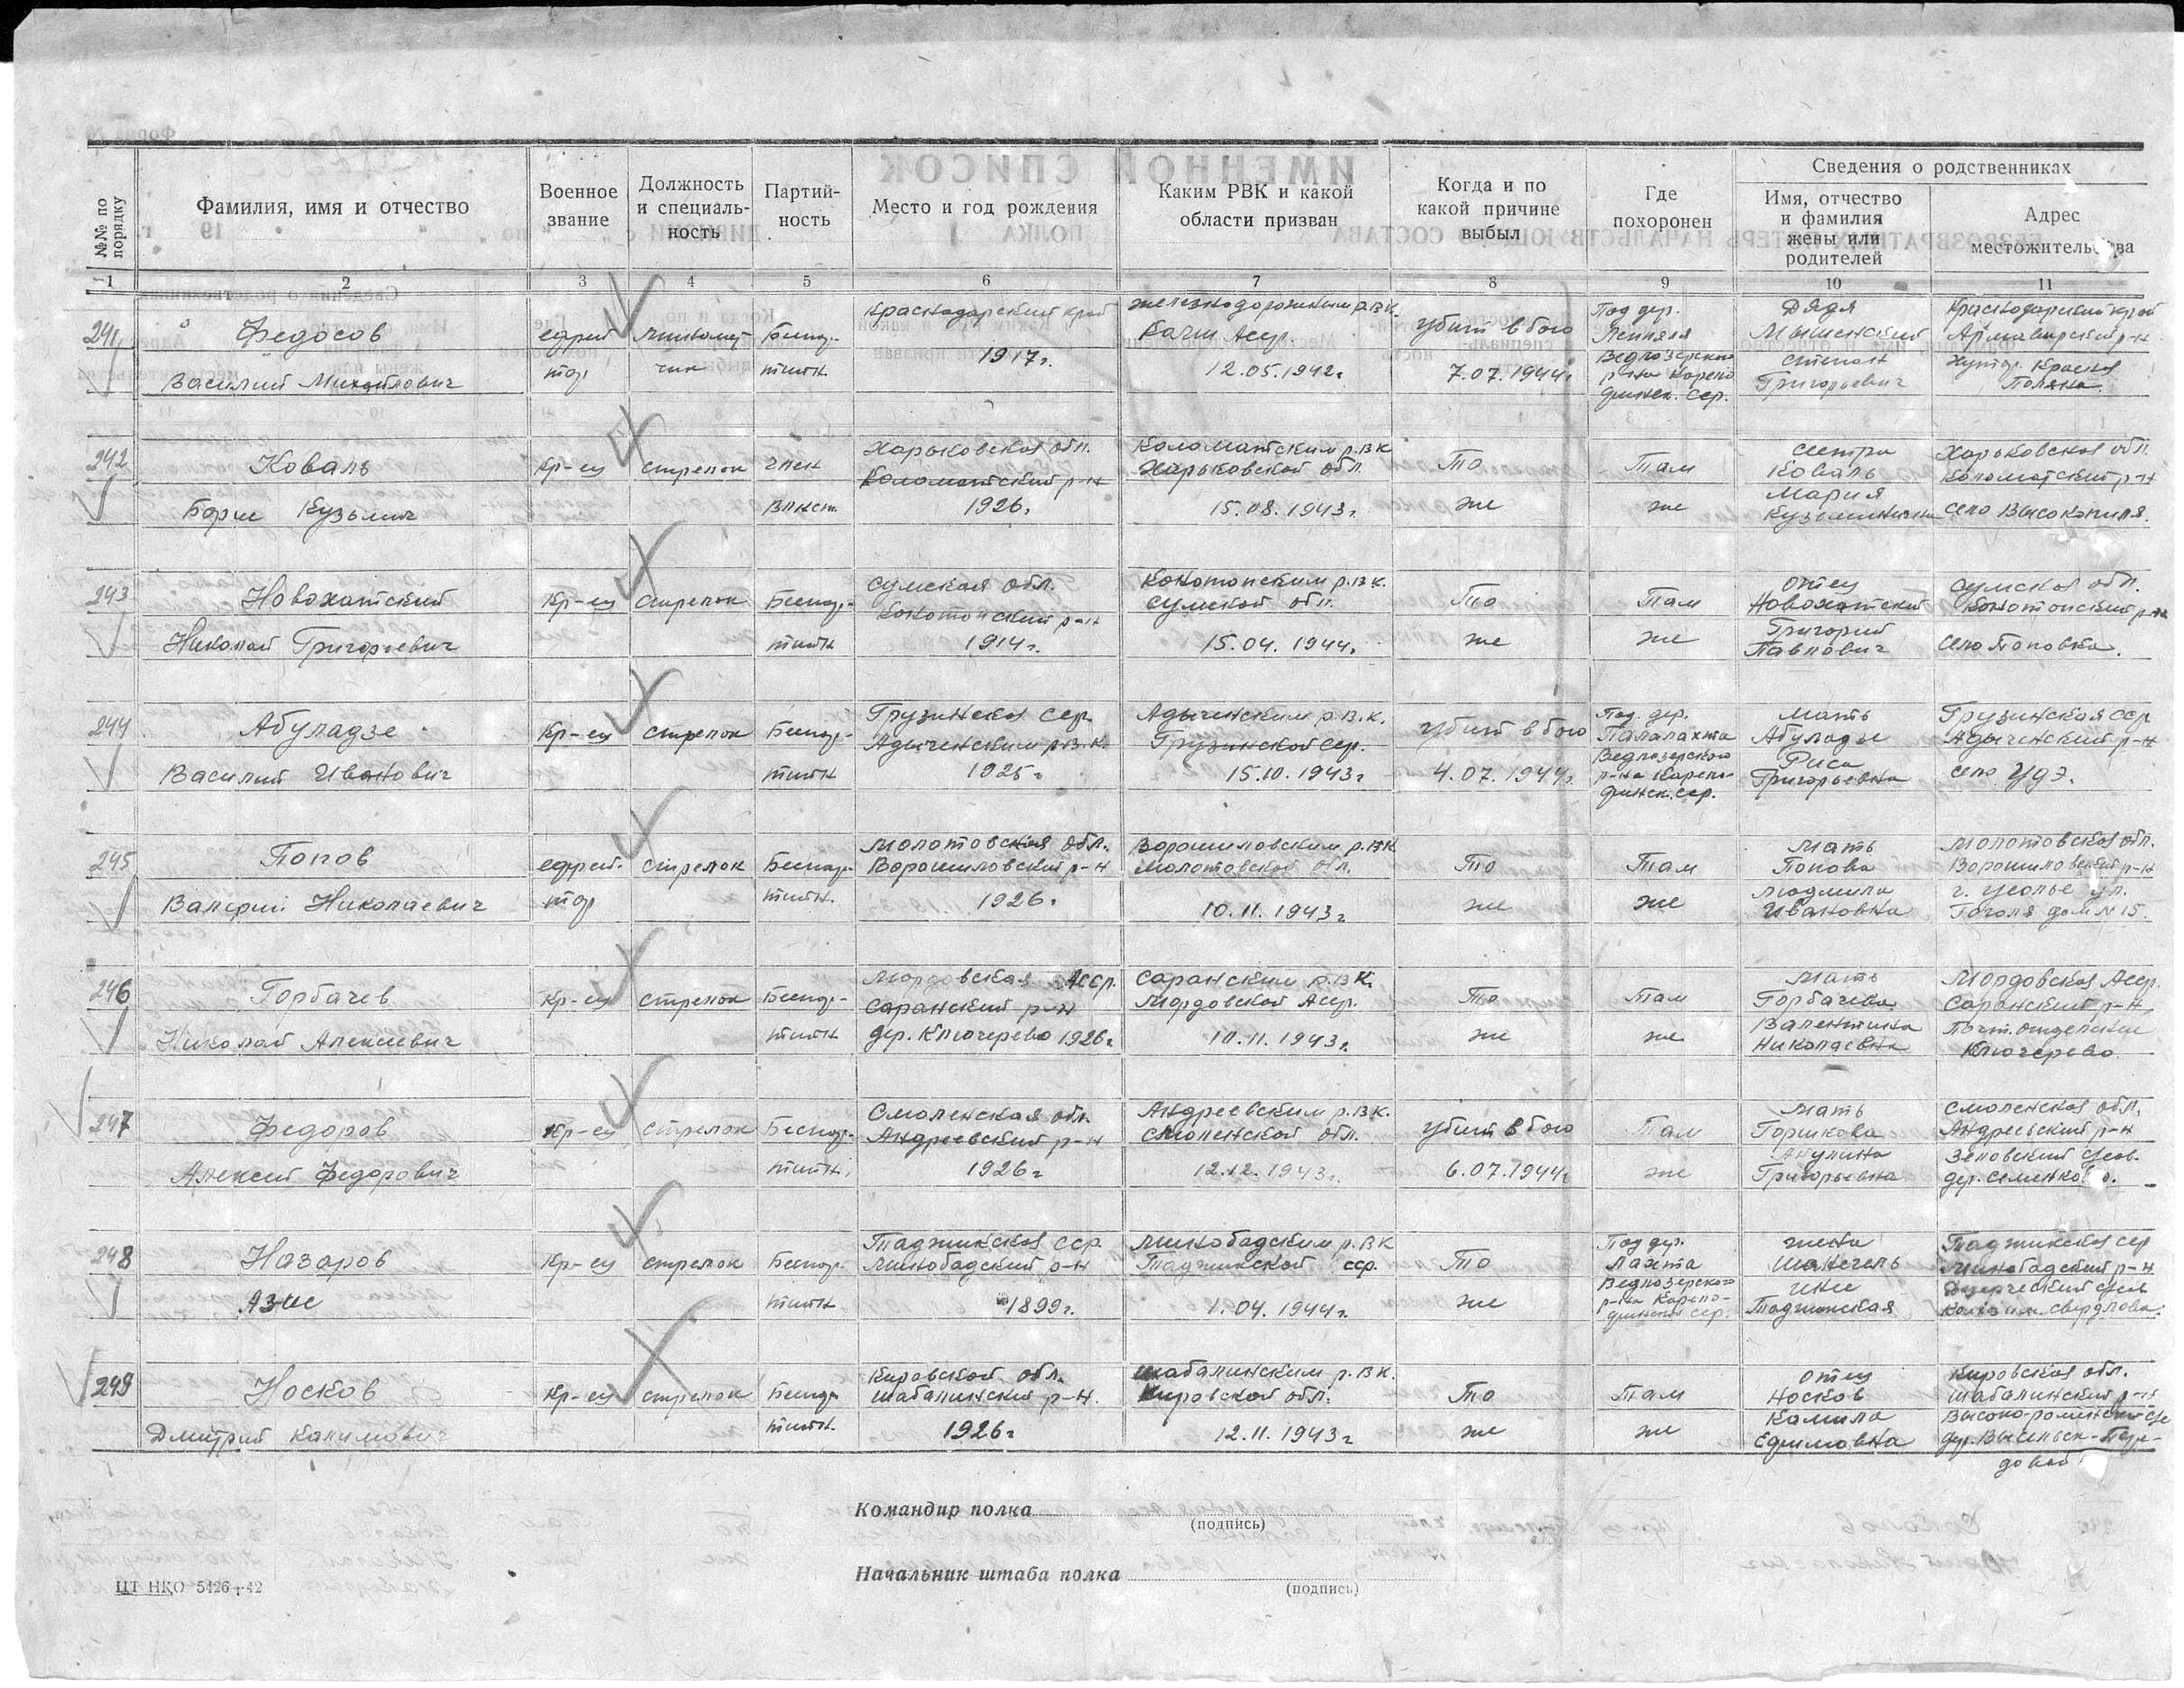 Сведения о родственниках
№№ по порядку
Фамилия, имя и отчество
Военное звание
Должность и специаль-ность
Партий-ность
Место и год рождения
Каким РВК и какой области призван
Когда и по какой причине выбыл
Где похоронен
Имя, отчество и фамилия жены или родителей
Адрес местожительства
1 2 3 4 5 6 7 8 9 10 11
241
Федосов
Василий Михайлович
ефрей
тор
Беспар-
тийн
Краснодарский край
1917г.
железнодорожным р.в.к.
12.05.1942г
убит в бою
7.07.1944г
Под дер.
Ведлозерского
р-на Карело
финск. сср.
Дядя
Мышенский
степан
Григорьевич
Краснодарский край
Армавирский р-н
Поляна.
242
Коваль
Борис Кузьмич
Кр-ец
стрелок
член
влксм.
Харьковская обл.
Коломатский р-н
1926г
Коломатским р.вк
Харьковской обл.
15.08.1943г
То
же
Там
же
сестра
Коваль
Мария
Кузьминична
Харьковская обл.
Коломатский р-н
село Высокопиля.
243
Новохатский
Николай Григорьевич
Кр-ец
стрелок
Беспар-
тийн
Сумская обл.
Конотопский р-н
1914г.
Конотопским р.в.к.
сумской обл.
15.04.1944г
То
же
Там
же
отец
Новохатский
Григорий
Павлович
Сумская обл.
Конотопский р-н
село Поповка.
244
Абуладзе
Василий Иванович
Кр-ец
стрелок
Беспар-
тийн
Грузинская сср.
Адыгенским р.в.к.
1925г
Адыгенским р.в.к.
Грузинской сср.
15.10.1943г
убит в бою
4.07.1944г.
Под. дер.
Палалахта
Ведлозерского
р-на Карело-
финск. сср.
мать
Абуладзе
Григорьевна
Грузинская сср
Адыгенский р-н
село Удэ.
245
Попов
Валерий Николаевич
ефрей-
тор
стрелок
Беспар-
тийн.
Молотовская обл.
Ворошиловский р-н
1926г
Ворошиловским р.вк
Молотовской обл.
10.11.1943г
То
же
Там
же
мать
Попова
Людмила
Ивановна
Молотовская обл.
Ворошиловский р-н
г. Усолье ул.
Гоголя дом № 15.
246
Горбачев
Николай Алексеевич
Кр-ец
стрелок
Беспар-
тийн
Мордовская Асср.
Саранский р-н
дер. Ключерево 1926г
Саранским р.вк.
Мордовской Асср.
10.11.1943г
То
же
Там
же
мать
Горбачева
Валентина
Николаевна
Мордовская Асср.
Саранский р-н
почт. отделение
Ключерево.
247
Федоров
Алексей Федорович
Кр-ец
стрелок
Беспар-
тийн.
Смоленская обл.
Андреевский р-н
1926г
Андреевским р.в.к.
Смоленской обл.
12.12.1943г.
убит в бою
6.07.1944г
Там
же
мать
Горшкова
Акулина
Григорьевна
Смоленская обл.
Андреевский р-н
дер. Семенково.
248
Назаров
Азис
Кр-ец
стрелок
Беспар.
тийн
Таджикская сср.
Микобадский р-н
1899г.
Микобадским р.вк
Таджикской сср.
1.04.1944г.
То
же
Под дер.
Лахта
Ведлозерского
р-на Карело-
финской сср.
жена
Таджикская
Таджикская сср
Микобадский р-н
249
Носков
Дмитрий Калимович
Кр-ец
стрелок
Беспар
тийн.
Кировской обл.
Шабалинский р-н.
1926г
Шабалинским р.вк.
Кировской обл.
12.11.1943г
То
же
Там
же
отец
Носков
Камила
Ефимовна
Кировская обл.
Шабалинский р-н
Командир полка
(подпись)
Начальник штаба полка
(подпись)
ЦТ НКО 5426-42